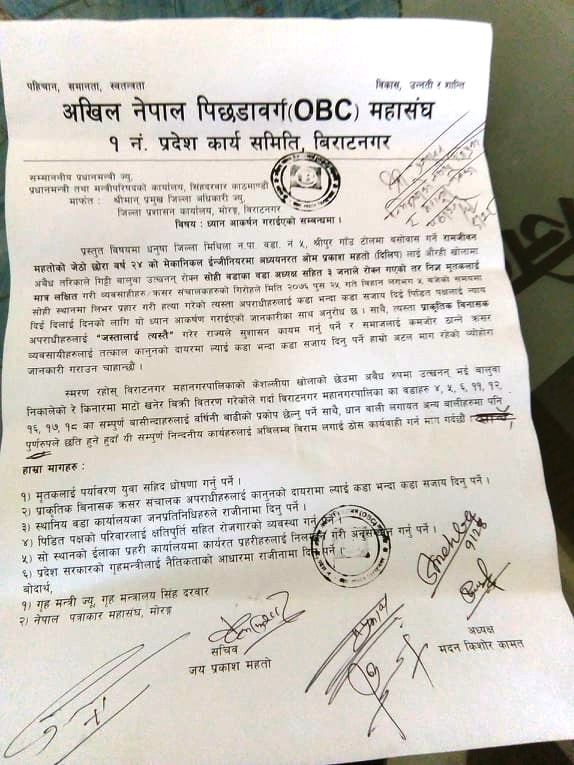 पहिचान, समानता, स्वतन्त्रता
विकास, उन्नती र शान्ति
अखिल नेपाल पिछडावर्ग(OBC) महासंघ
१ नं. प्रदेश कार्य समिति, बिराटनगर
सम्माननीय प्रधानमन्त्री ज्यू,
प्रधानमन्त्री तथा मन्त्रीपरिषदको कार्यालय, सिंहदरवार काठमाण्डौ
मार्फत : श्रीमान् प्रमुख जिल्ला अधिकारी ज्यू,
जिल्ला प्रशासन कार्यालय, मोरङ्ग, बिराटनगर
बिषय : ध्यान आकर्षण गराईएको सम्बन्धमा ।
प्रस्तुत विषयमा धनुषा जिल्ला मिथिला न.पा. वडा. नं ५, श्रीपुर गाउँ टोलमा बसोवास गर्ने रामजीवन
महतोको जेठो छोरा वर्ष २४ को मेकानिकल ईन्जीनियरमा अध्ययनरत ओम प्रकाश महतो (दिलिप) लाई औरही खोलामा
अबैध तरिकाले गिट्टी बालुवा उत्खनन् रोक्न सोही वडाका वडा अध्यक्ष सहित ३ जनाले रोक्न गएको तर निज मृतकलाई
मात्र लक्षित गरी व्यबसाहीहरू/क्रसर संचालकहरुको गिरोहले मिति २०७६ पुस २५ गते बिहान लगभग ५ बजेको समयमा
सोही स्थानमा लिभर प्रहार गरी हत्या गरेको त्यस्ता अपराधीहरुलाई कडा भन्दा कडा सजाय दिई पिडित पक्षलाई न्याय
दिई दिलाई दिनको लागि यो ध्यान आकर्षण गराईएको जानकारीका साथ अनुरोध छ । साथै, त्यस्ता प्राकृतिक बिनासक
अपराधीहरुलाई "जस्तालाई त्यस्तै" गरेर राज्यले सुशासन कायम गर्नु पर्ने र समाजलाई कमजोर ठान्ने क्रसर
व्यवसायीहरुलाई तत्काल कानुनको दायरमा ल्याई कडा भन्दा कडा सजाय दिनु पर्ने हाम्रो अटल माग रहेको व्योहोरा
जानकारी गराउन चाहान्छौं ।
स्मरण रहोस् बिराटनगर महानगरपालिकाको केशल्यिा खोलाको छेउमा अबैध रुपमा उत्खनन् भई बालुवा
निकालेको रे किनारमा माटो खनेर बिक्री वितरण गरेकोले गर्दा बिराटनगर महानगरपालिका का वडाहरु ४, ५, ६, ११, १२,
१६, १७, १८ का सम्पुर्ण बासीन्दाहरुलाई वर्षिनी बाढीको प्रकोप छेल्नु पर्ने साथै, धान बाली लगायत अन्य बालीहरुमा पनि
पुर्णरुपले छति हुने हुदाँ यी सम्पुर्ण निन्दनीय कार्यहरुलाई अबिलम्ब बिराम लगाई ठोस कार्यवाही गर्न माग गर्दछौं ।
हाम्रा मागहरु :
१) मृतकलाई पर्यावरण युवा सहिद घोषणा गर्नु पर्ने ।
२) प्राकृतिक बिनासक क्रसर संचालक अपराधीहरुलाई कानुनको दायरमा ल्याई कडा भन्दा कडा सजाय दिनु पर्ने ।
३) स्थानिय वडा कार्यालयका जनप्रतिनिधिहरुले राजीनामा दिनु पर्ने ।
४) पिडित पक्षको परिवारलाई क्षतिपुर्ति सहित रोजगारको ब्यवस्था गर्नु पर्ने ।
५) सो स्थानको ईलाका प्रहरी कार्यालयमा कार्यरत प्रहरीहरुलाई गरी गर्नु पर्ने ।
६) प्रदेश सरकारको गृहमन्त्रीलाई नैतिकताको आधारमा राजीनामा दिनु पर्ने ।
बोदार्थ,
१) गृह मन्त्री ज्यू, गृह मन्त्रालय सिंह दरवार
२) नेपाल पत्राकार महासंघ, मोरङ्ग
सचिव
जय प्रकाश महतो
अध्यक्ष
मदन किशोर कामत